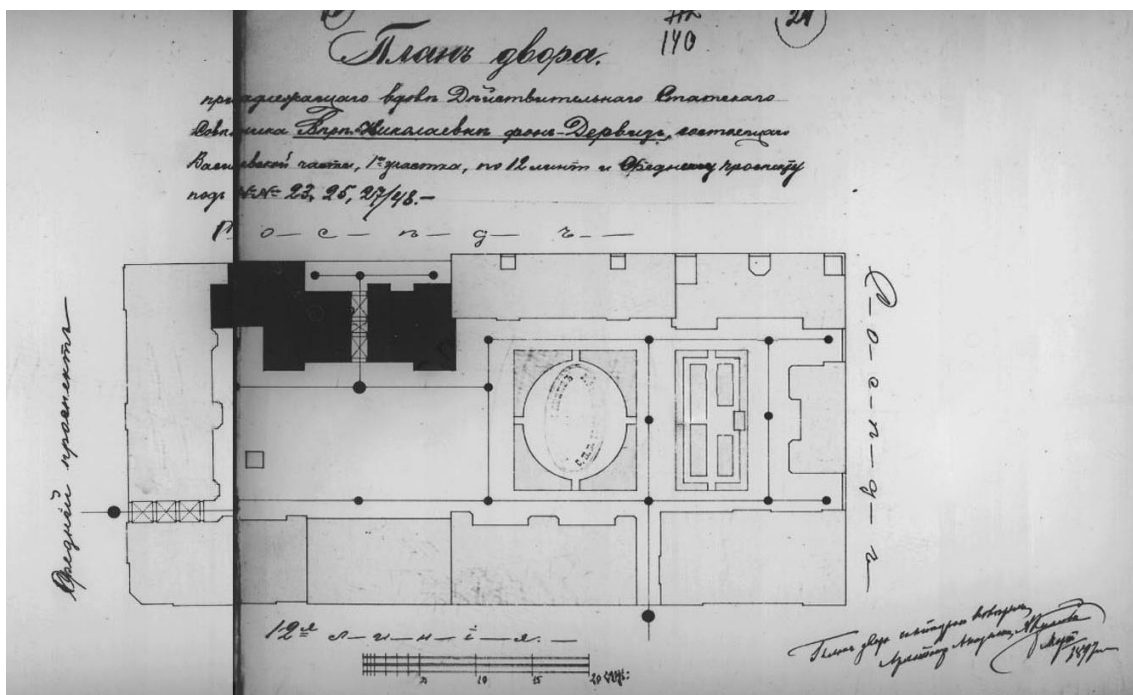 140
24
Планъ двора.
принадлежащаго вдовѣ Дѣйствительнаго Статскаго
Совѣтника Вѣрѣ Николаевнѣ фонъ-Дервизъ, состоящаго
Васильевской части, 1го участка, по 12 линіи и Среднему проспекту
подъ №№ 23, 25, 27/48.—
С-о-с-ѣ-д-ъ
Средній проспектъ
С-о-с-ѣ-д-ъ
12я л-и-н-і-я.-
5 10 15 20 саж:
Планъ двора
Архитекторъ